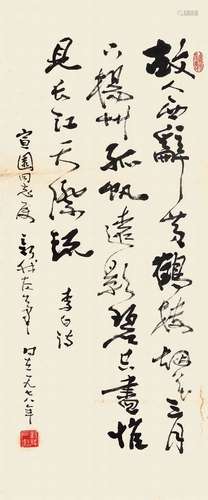 故人西辭黄鶴楼烟花三月
下揚州孤帆遠影碧空盡惟
見長江天際流
李白詩
宣園同志屬 新我左筆 时在一九七八年